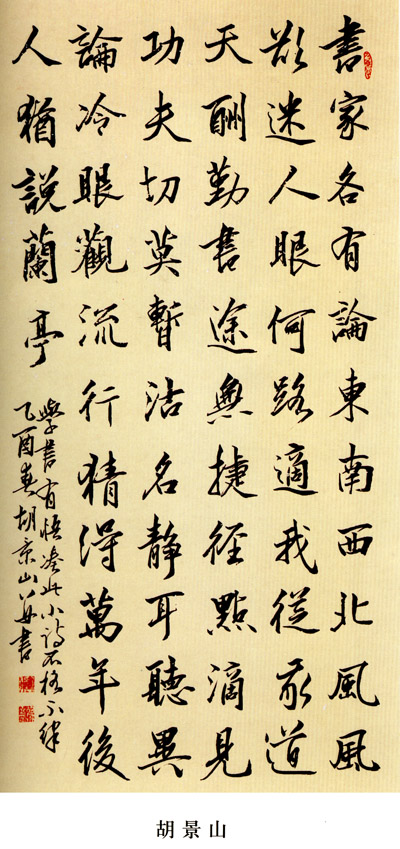 書家各有論東南西北風風
欲迷人眼何路適我從道
天酬勤書途無捷徑點滴見
功夫切莫暫沽名靜耳聽異
論冷眼觀流行猜得萬年後
人猶說蘭亭
學書有悟湊此小詩不格不律
乙酉春胡景山并書
胡景山